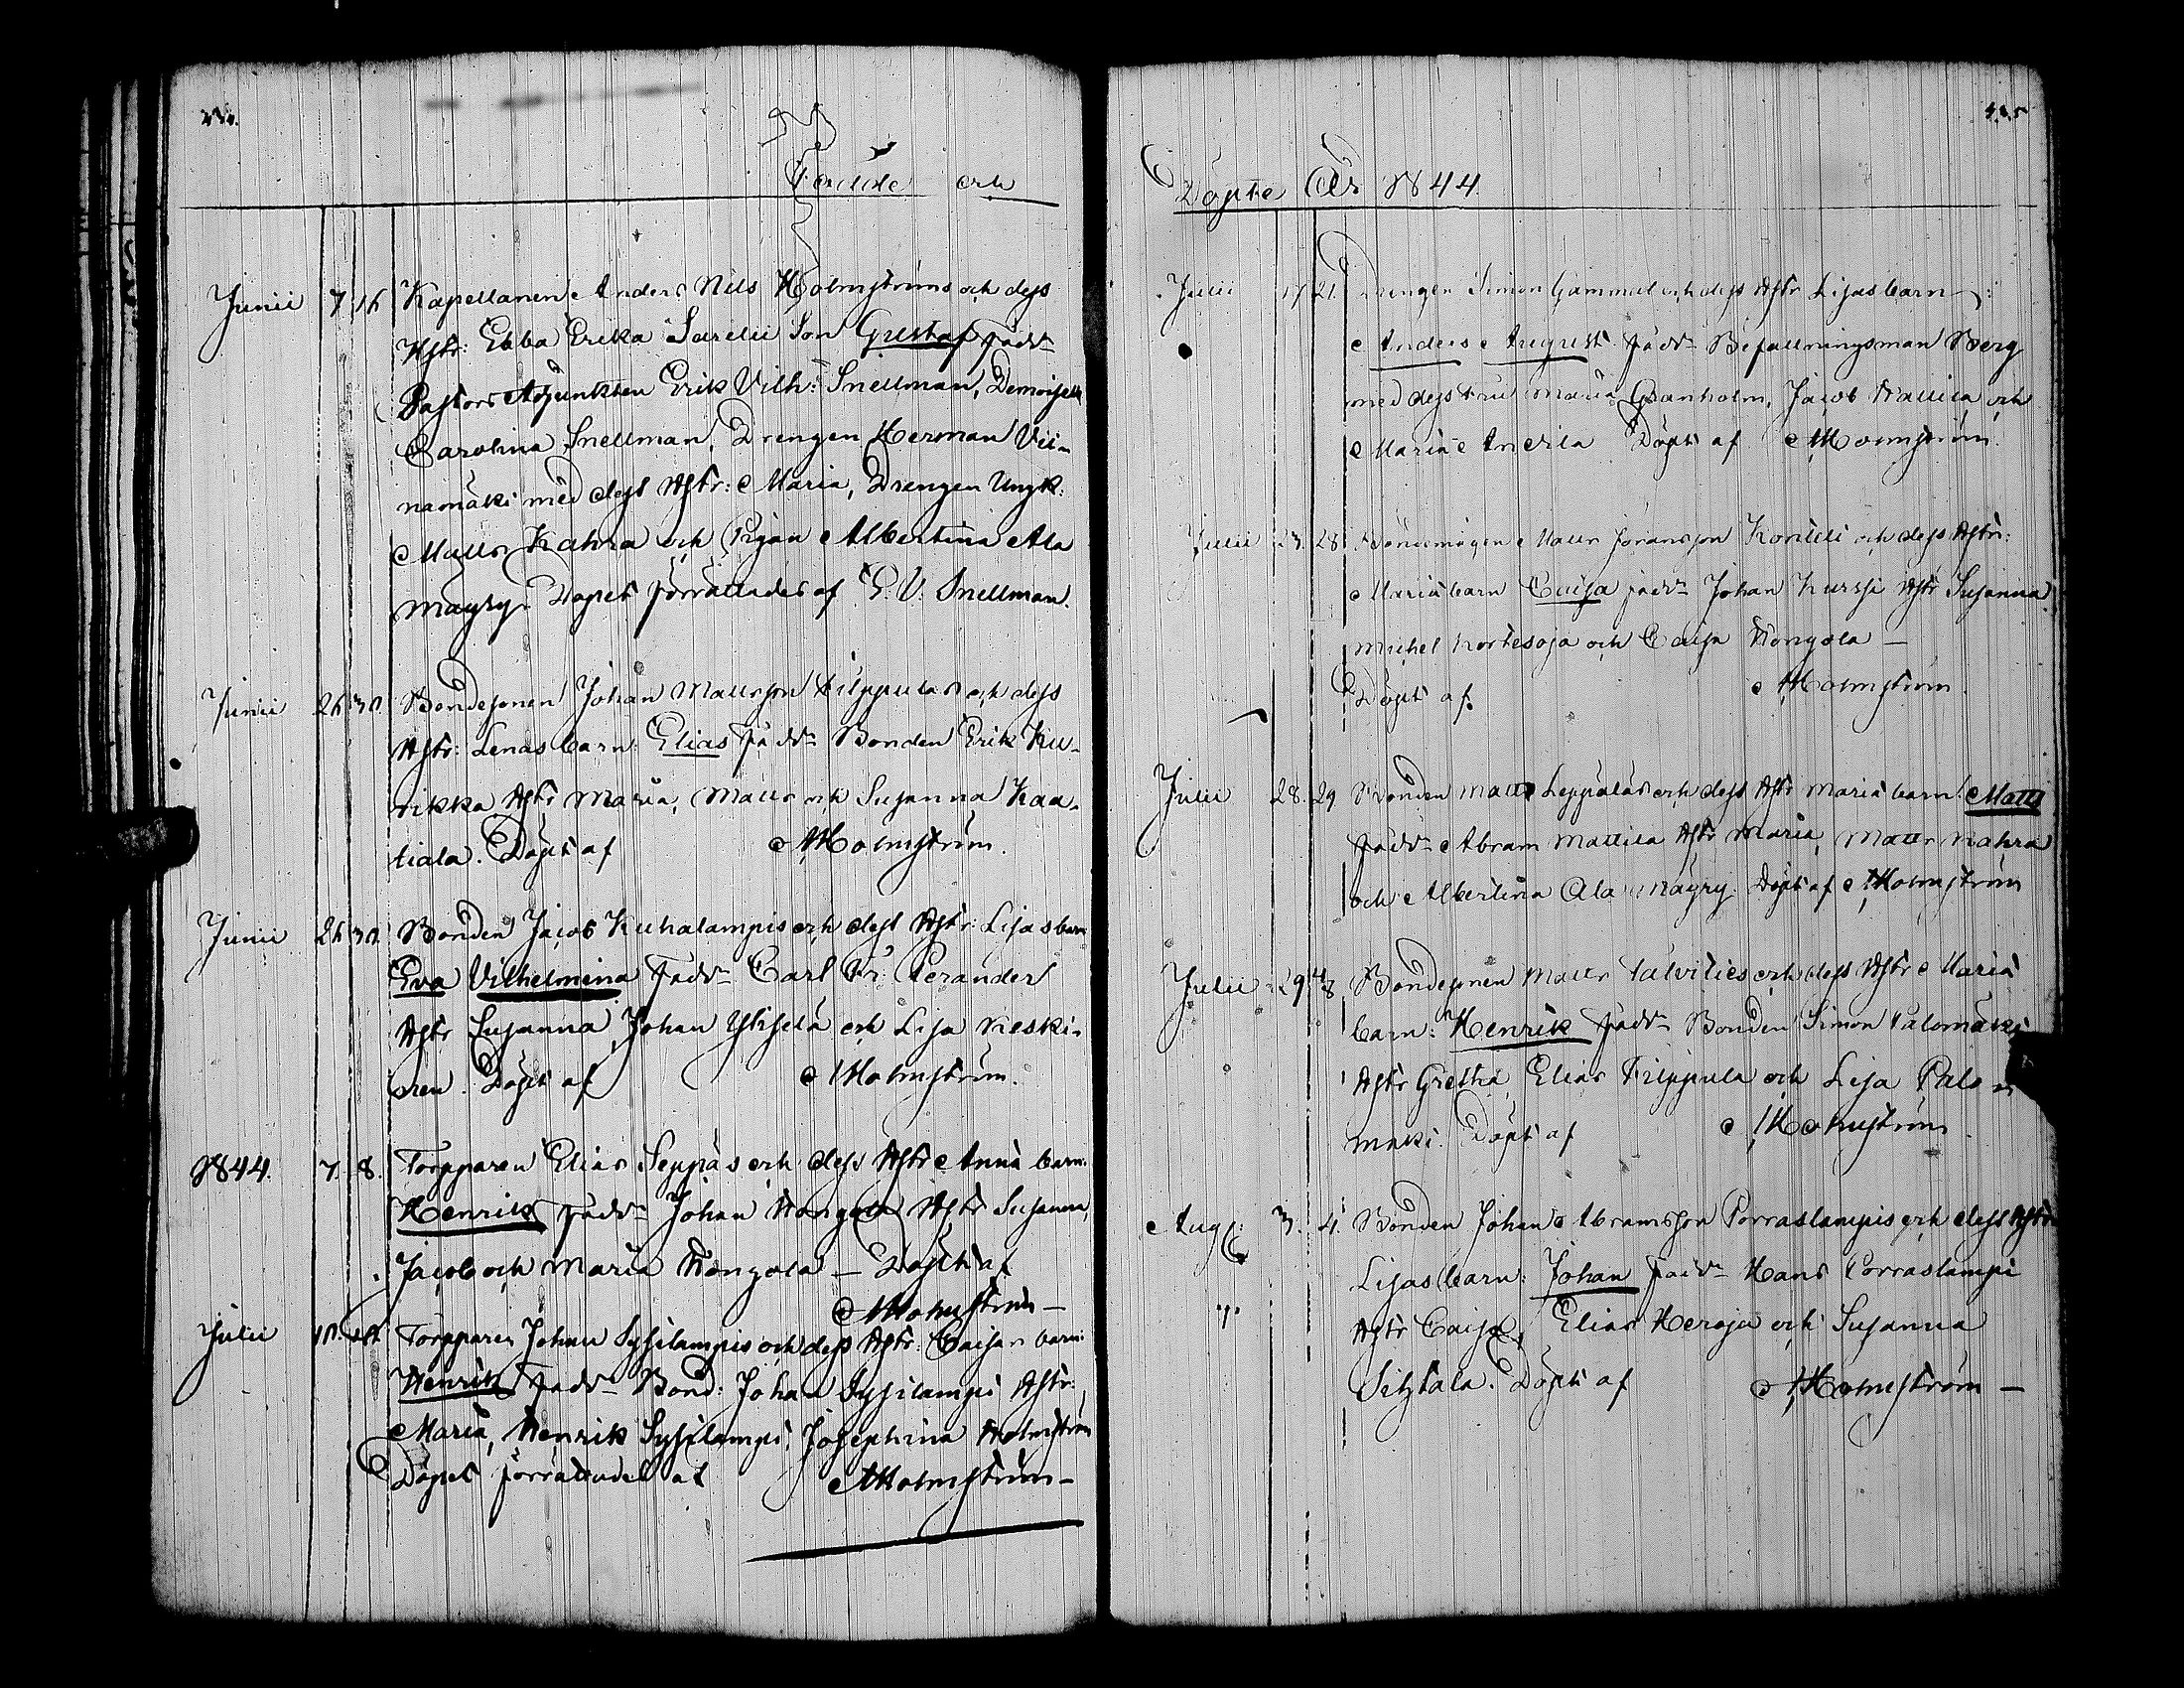 Födde och
Junii 7 16 Kapellanen Anders Nils Holmströms och dess
Hstr: Ebba Erika Sarelii Son Gustaf fadd:
Pastors Adjunkten Erik Vilh: Snellman, Demoiselle
Carolina Snellman, Drengen Herman Vii-
namäki med dess Hstr: Maria, Drengen Ungk:
Matts Kahra och Pigan Albertina Ala
mäyry. Dopet förrättades af E. V. Snellman.
Junii 26 30 Bondesonen Johan Mattsson Filppulas och dess
Hstr: Lenas barn: Elias fadd: Bonden Erik Ku-
rikka Hstr Maria, Matts och Susanna Kaa-
liala. Döpt af Holmström.
Junii 26 30 Bonden Jacob Kuhalampis och dess Hstr: Lisas barn
Eva Vilhelmina fadd: Carl Fr: Perander
Hstr Susanna, Johan Ylisselä och Lisa Keski-
nen. Döpt af Holmström.
1844. 7. 8. Torpparen Elias Seppäs och dess Hstr Anna barn:
Henrik fadd: Johan Hongola Hstr Susanna,
Jacob och Maria Hongola — Döpt af
Holmström —
Julii 10. Torpparen Johan Sysilampis och dess Hstr: Caisas barn:
Henrik fadd: Bond: Johan Sysilampi Hstr:
Maria, Henrik Sysilampi, Josephina Holmström
Dopet förrättadet af Holmström —
Döpte År 1844.
Julii 17 21. Drengen Simon Gammal och dess Hstr Lisas barn:
Anders August fadd: Befallningsman Berg
med dess Fru Maria Granholm, Jacob Mattila och
Maria Anerla Döpt af Holmström.
Julii 23. 28 Bondemågen Matts Joransson Kortelis och dess Hstr:
Maria barn Caisa fadd: Johan Kurssi Hstr Susanna
Michel Kortesoja och Caisa Hongola —
Döpt af. Holmström.
Julii 28. 29 Bonden Matts Leppälas och dess Hstr Maria barn: Matts
fadd: Abram Mattila Hstr Maria, Matts Kahra
och Albertina Ala mäyry. Döpt af Holmström
Julii 29 4/8 Bondesonen Matts Talvities och dess Hstr Maria
barn: Henrik fadd: Bonden Simon Palomäki
Hstr Gretha, Elias Filppula och Lisa Palo-
mäki. Döpt af Holmström
Aug: 3. 4. Bonden Johan Abramsson Porraslampis och dess Hstr
Lisas barn: Johan fadd: Hans Porraslampi
Hstr Caisa, Elias Heroja och Susanna
Siltala. Döpt af Holmström —